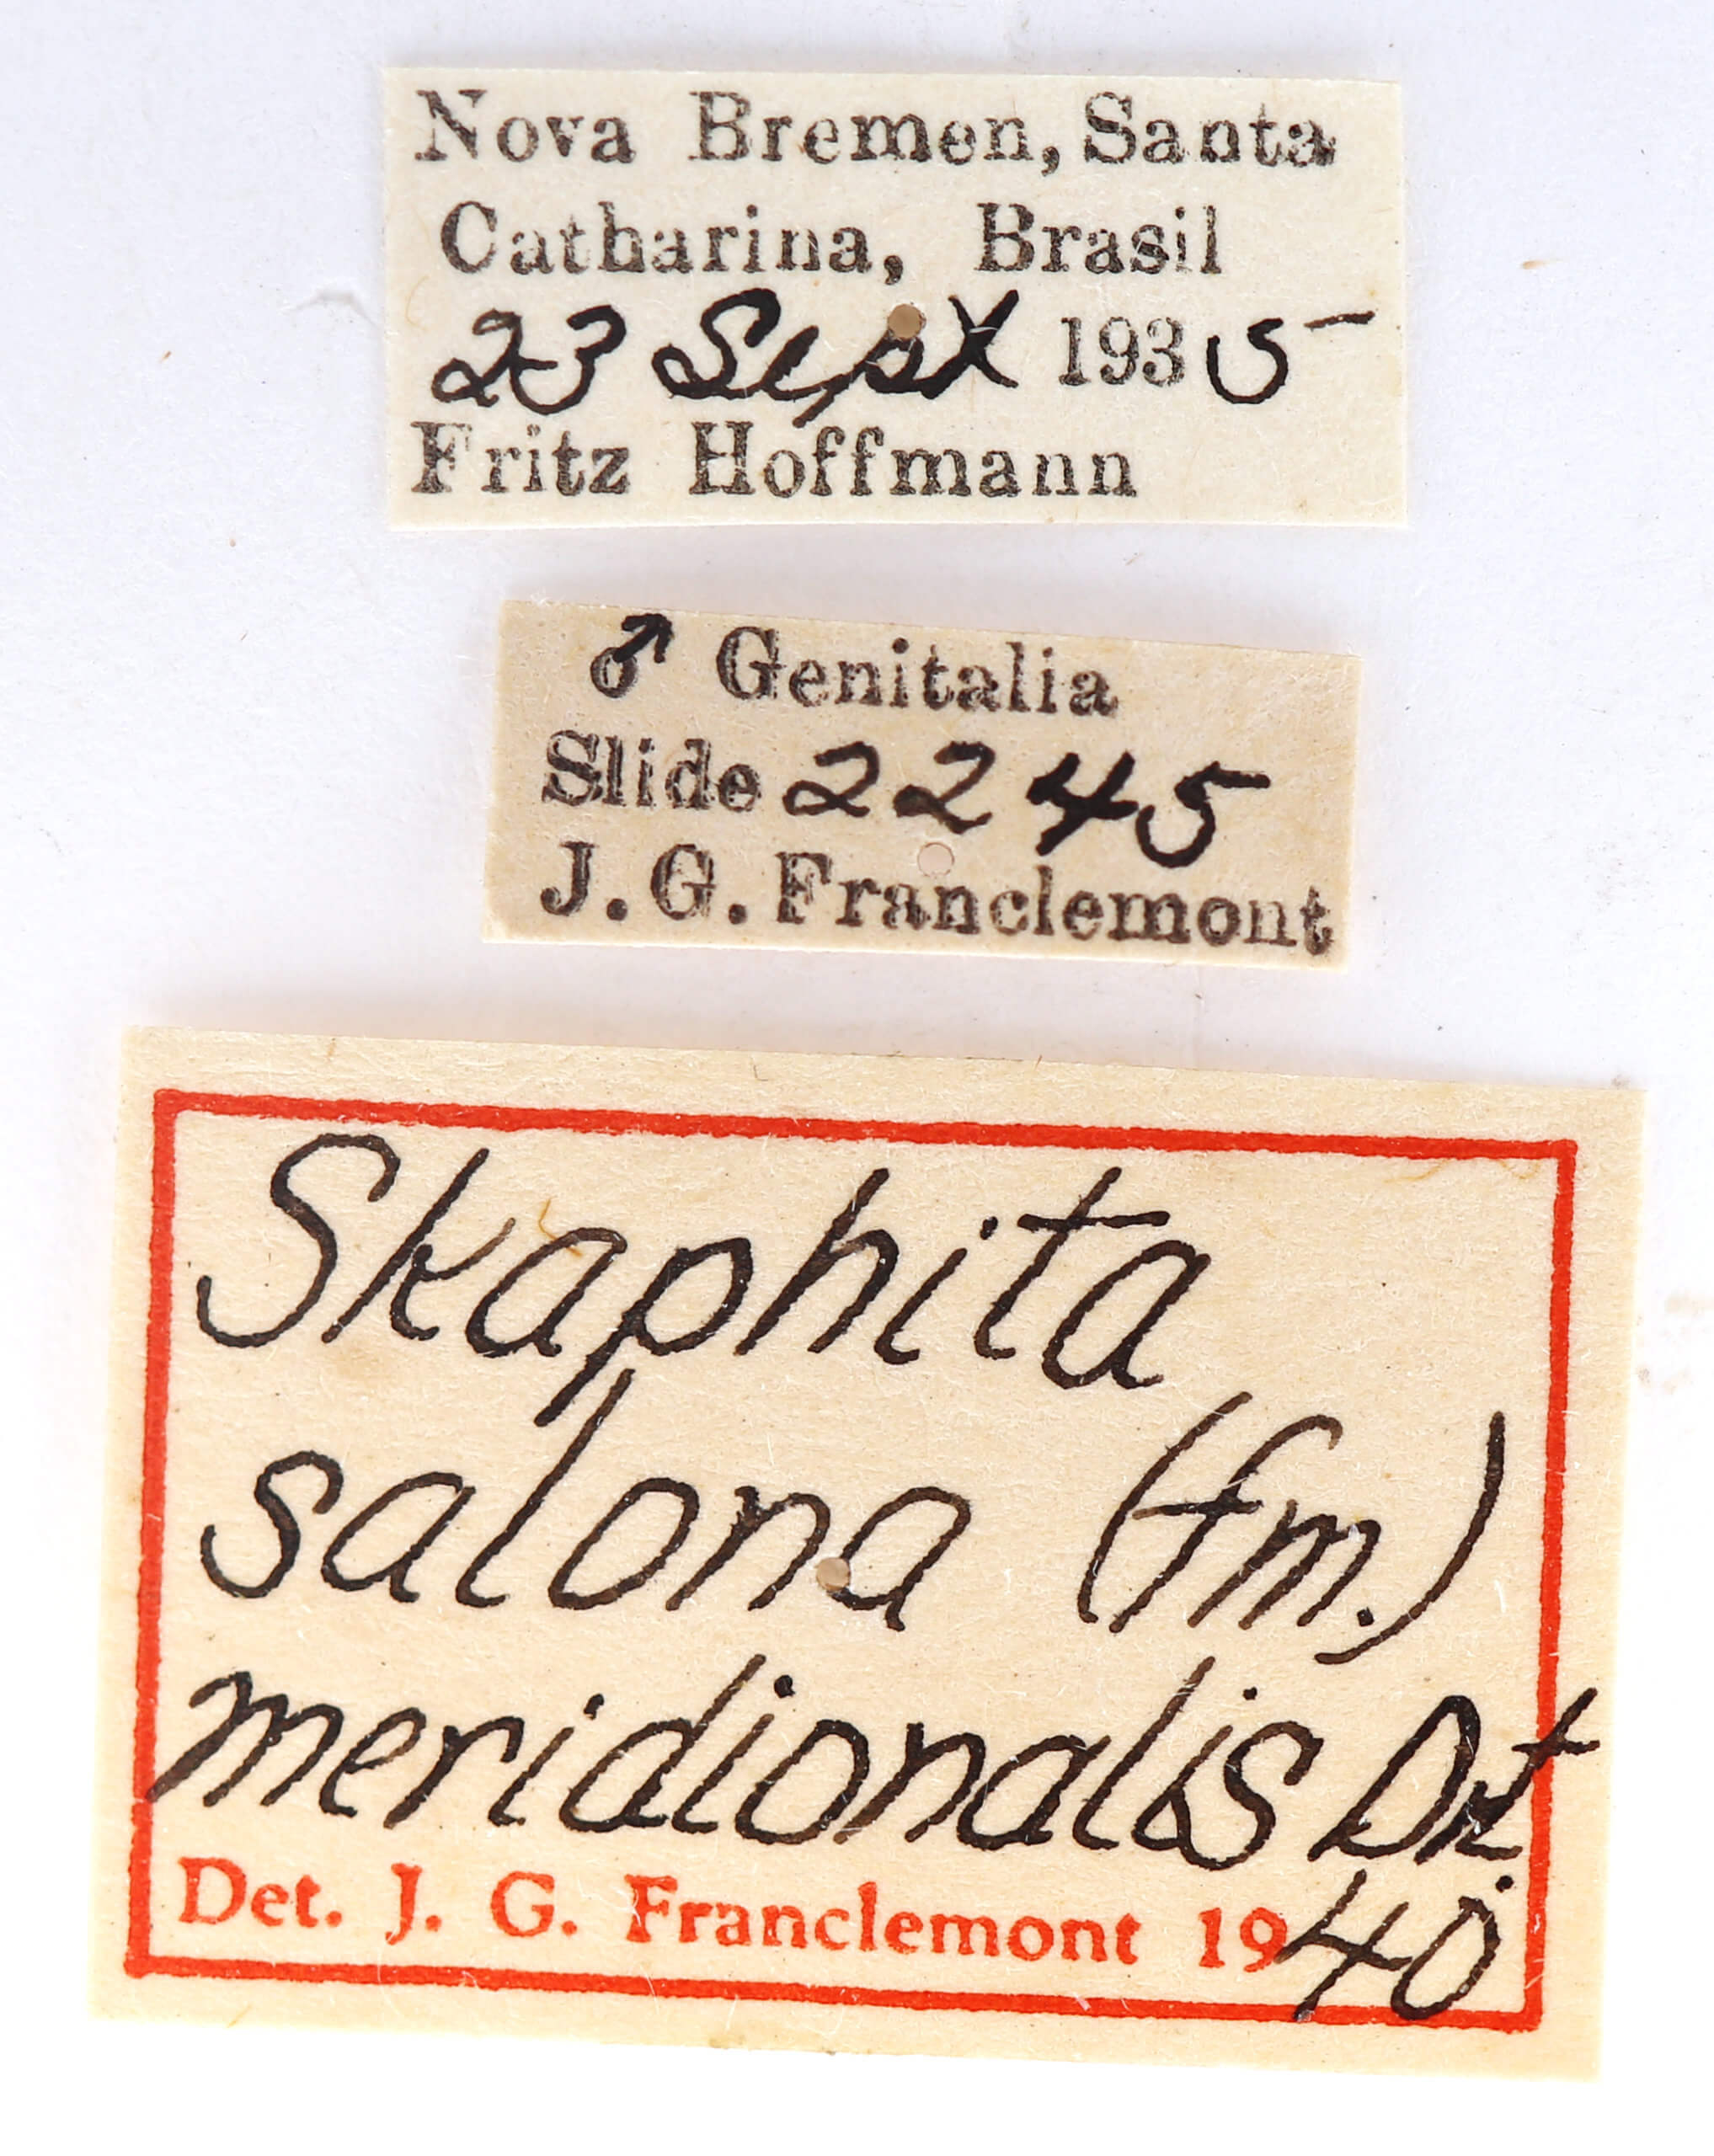 Nova Bremen, Santa
Catharina, Brasil
23 Sept 1935
Fritz Hoffmann
♂ Genitalia
Slide 2245
J. G. Franclemont
Skaphita
salona (fm.)
meridionalis Drt.
Det. J. G. Franclemont 1940